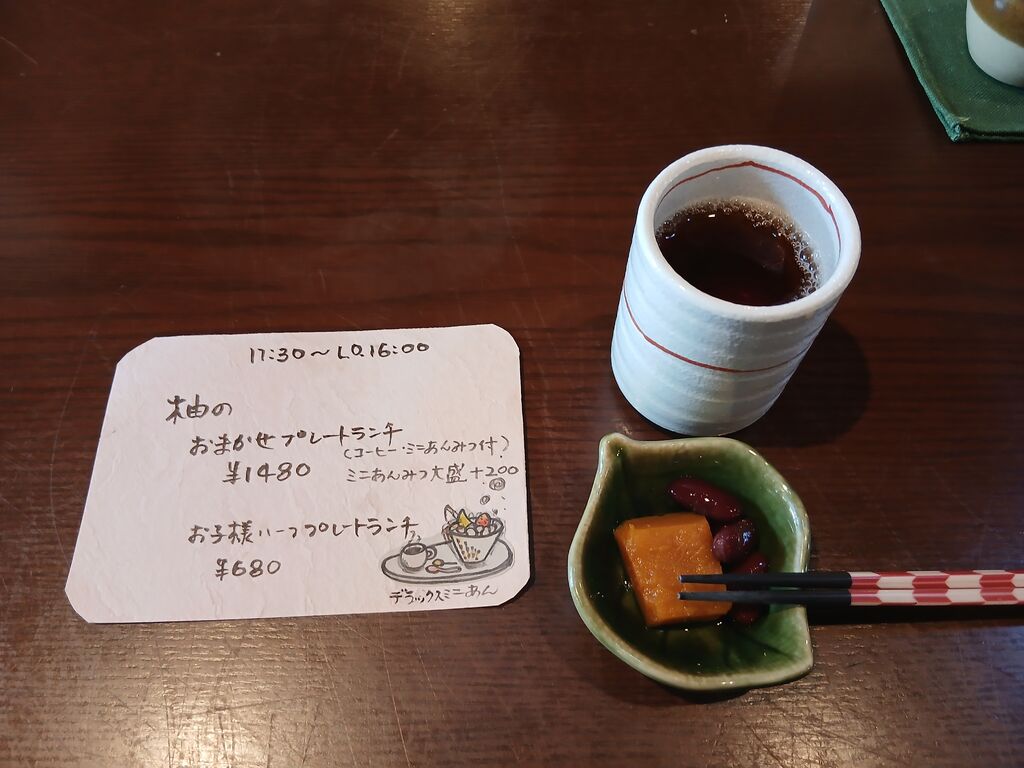 11:30～L.O.16:00
柚の
おまかせプレートランチ
(コーヒー・ミニあんみつ付)
¥1480 ミニあんみつ大盛+200
お子様ハーフプレートランチ
¥680
デラックスミニあん